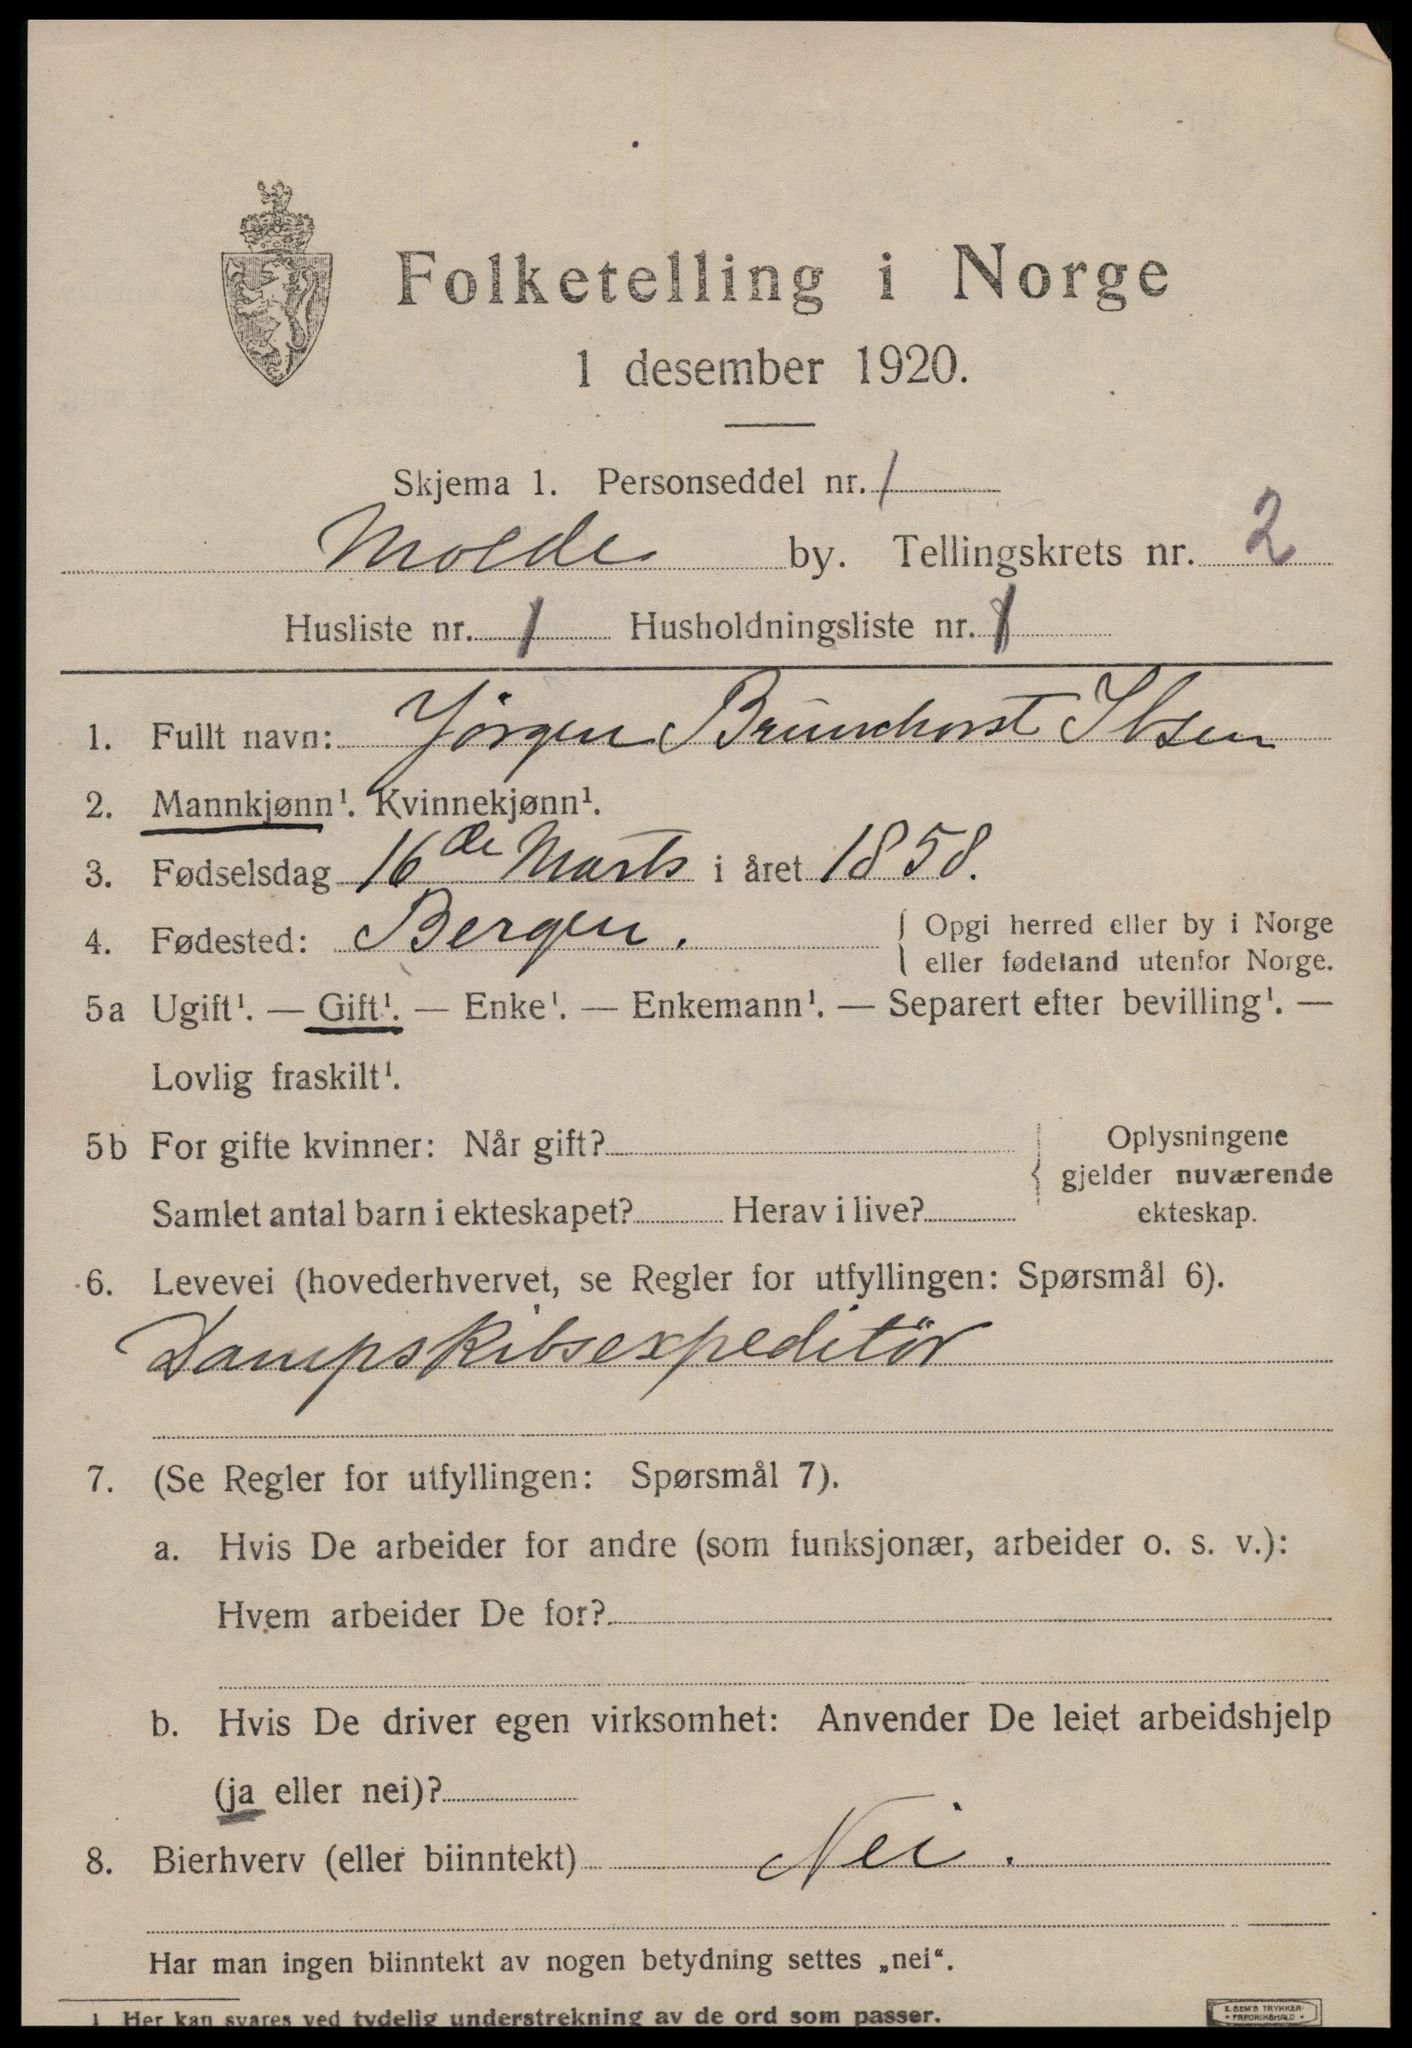 Folketelling i Norge
1 desember 1920.
Skjema 1. Personseddel nr. 1
Molde by. Tellingskrets nr. 2
Husliste nr. 1 Husholdningsliste nr. 1
1. Fullt navn: Jørgen Brunchorst Ibsen
2. Mannkjønn¹. Kvinnekjønn¹.
3. Fødselsdag 16de Marts i året 1858.
4. Fødested: Bergen. { Opgi herred eller by i Norge
eller fødeland utenfor Norge.
5a Ugift¹. — Gift¹. — Enke¹. — Enkemann¹. — Separert efter bevilling¹. —
Lovlig fraskilt¹.
5b For gifte kvinner: Når gift? { Oplysningene
gjelder nuværende
Samlet antal barn i ekteskapet? Herav i live? ekteskap.
6. Levevei (hovederhvervet, se Regler for utfyllingen: Spørsmål 6).
Dampskibsexpeditör
7. (Se Regler for utfyllingen: Spørsmål 7).
a. Hvis De arbeider for andre (som funksjonær, arbeider o. s. v.):
Hvem arbeider De for?
b. Hvis De driver egen virksomhet: Anvender De leiet arbeidshjelp
(ja eller nei)?
8. Bierhverv (eller biinntekt) Nei.
Har man ingen biinntekt av nogen betydning settes „nei“.
1 Her kan svares ved tydelig understrekning av de ord som passer.
E. SEM'S TRYKKERI
FREDRIKSHALD